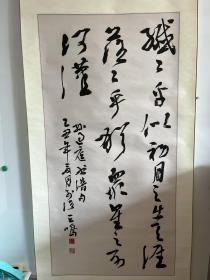 纖〻乎似初月之出天涯
落〻乎猶眾星之列
河漢
孫過庭書譜句
乙丑年夏月